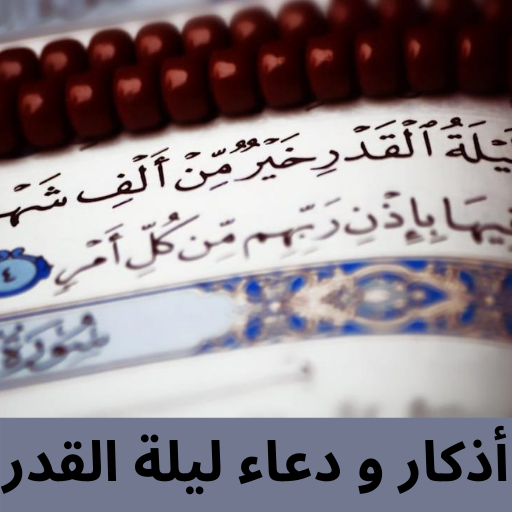 لَيْلَةُ ٱلْقَدْرِ خَيْرٌ مِّنْ أَلْفِ شَهْـ
فِيهَا بِإِذْنِ رَبِّهِم مِّن كُلِّ أَمْرٍ ٤
سُورَةُ
أذكار و دعاء ليلة القدر